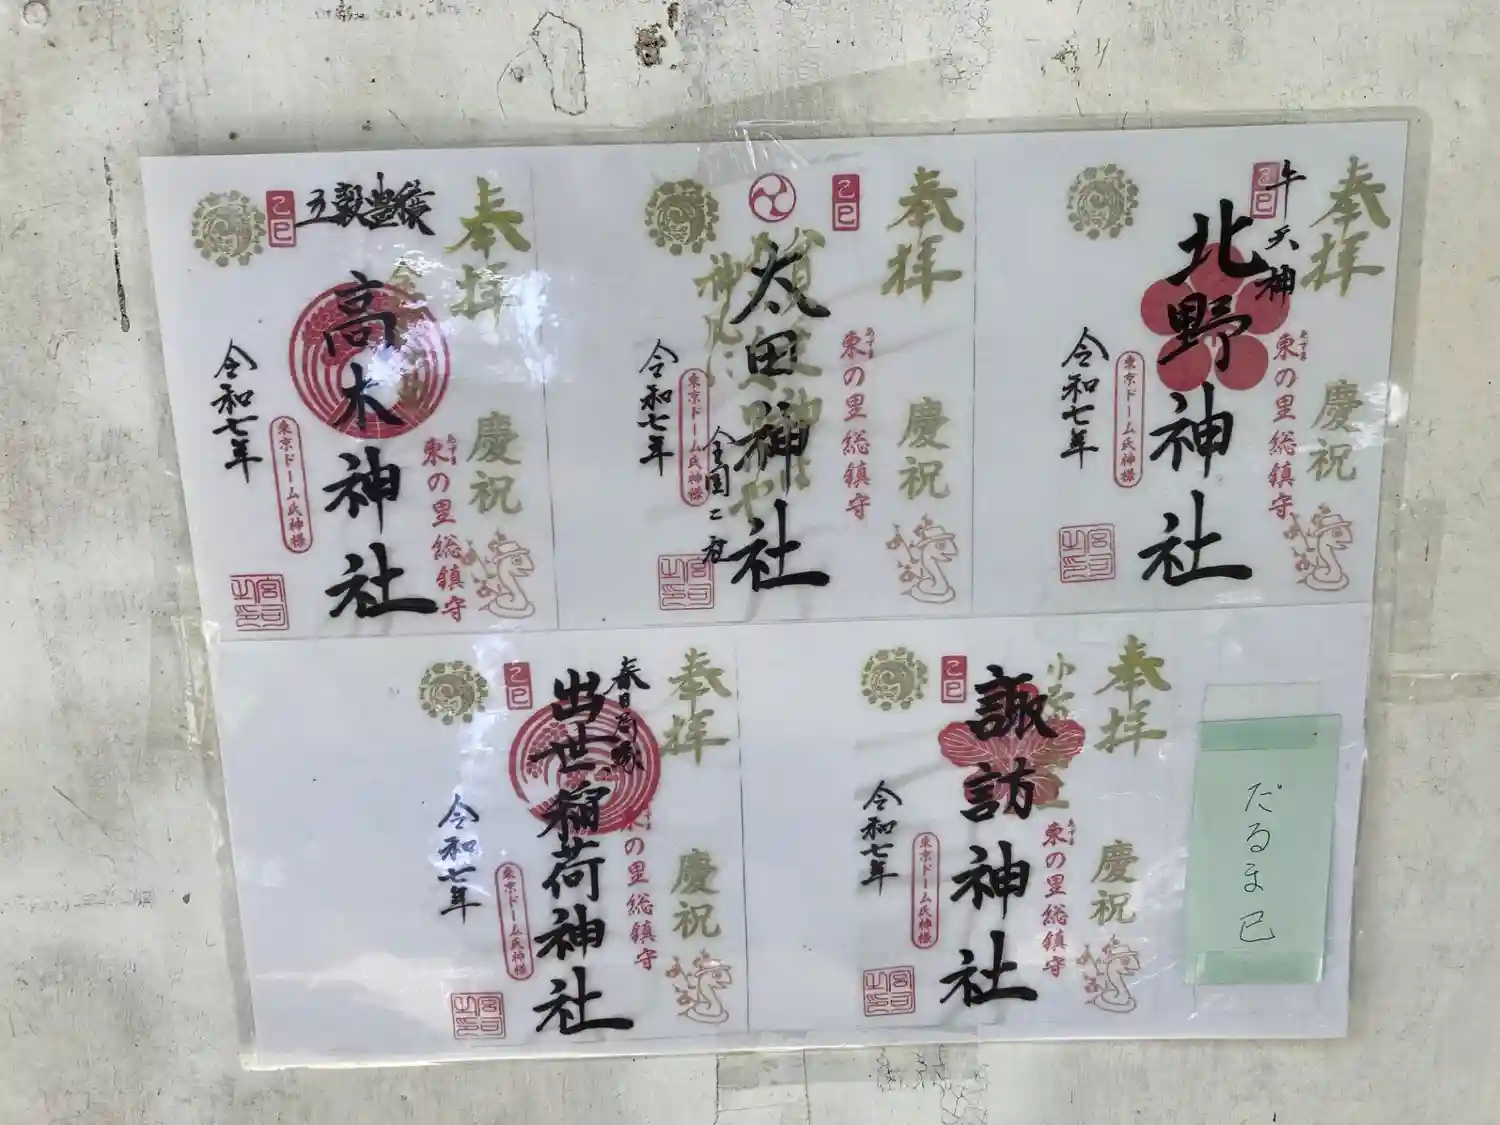 奉拝
慶祝
牛天神
己巳
北野神社
東の里総鎮守
あずま
東京ドーム氏神様
令和七年
奉拝
慶祝
己巳
太田神社
東の里総鎮守
あずま
全国二宮
東京ドーム氏神様
令和七年
奉拝
慶祝
五穀豊穣
己巳
高木神社
東の里総鎮守
あずま
東京ドーム氏神様
令和七年
奉拝
慶祝
己巳
諏訪神社
東の里総鎮守
あずま
東京ドーム氏神様
令和七年
奉拝
慶祝
己巳
出世稲荷神社
の里総鎮守
東京ドーム氏神様
令和七年
だるま巳